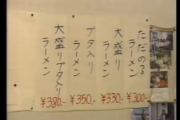 ただのラーメン
¥300-
大盛り
ラーメン
¥330-
ブタ入り
ラーメン
¥350-
大盛りブタ入り
ラーメン
¥380-